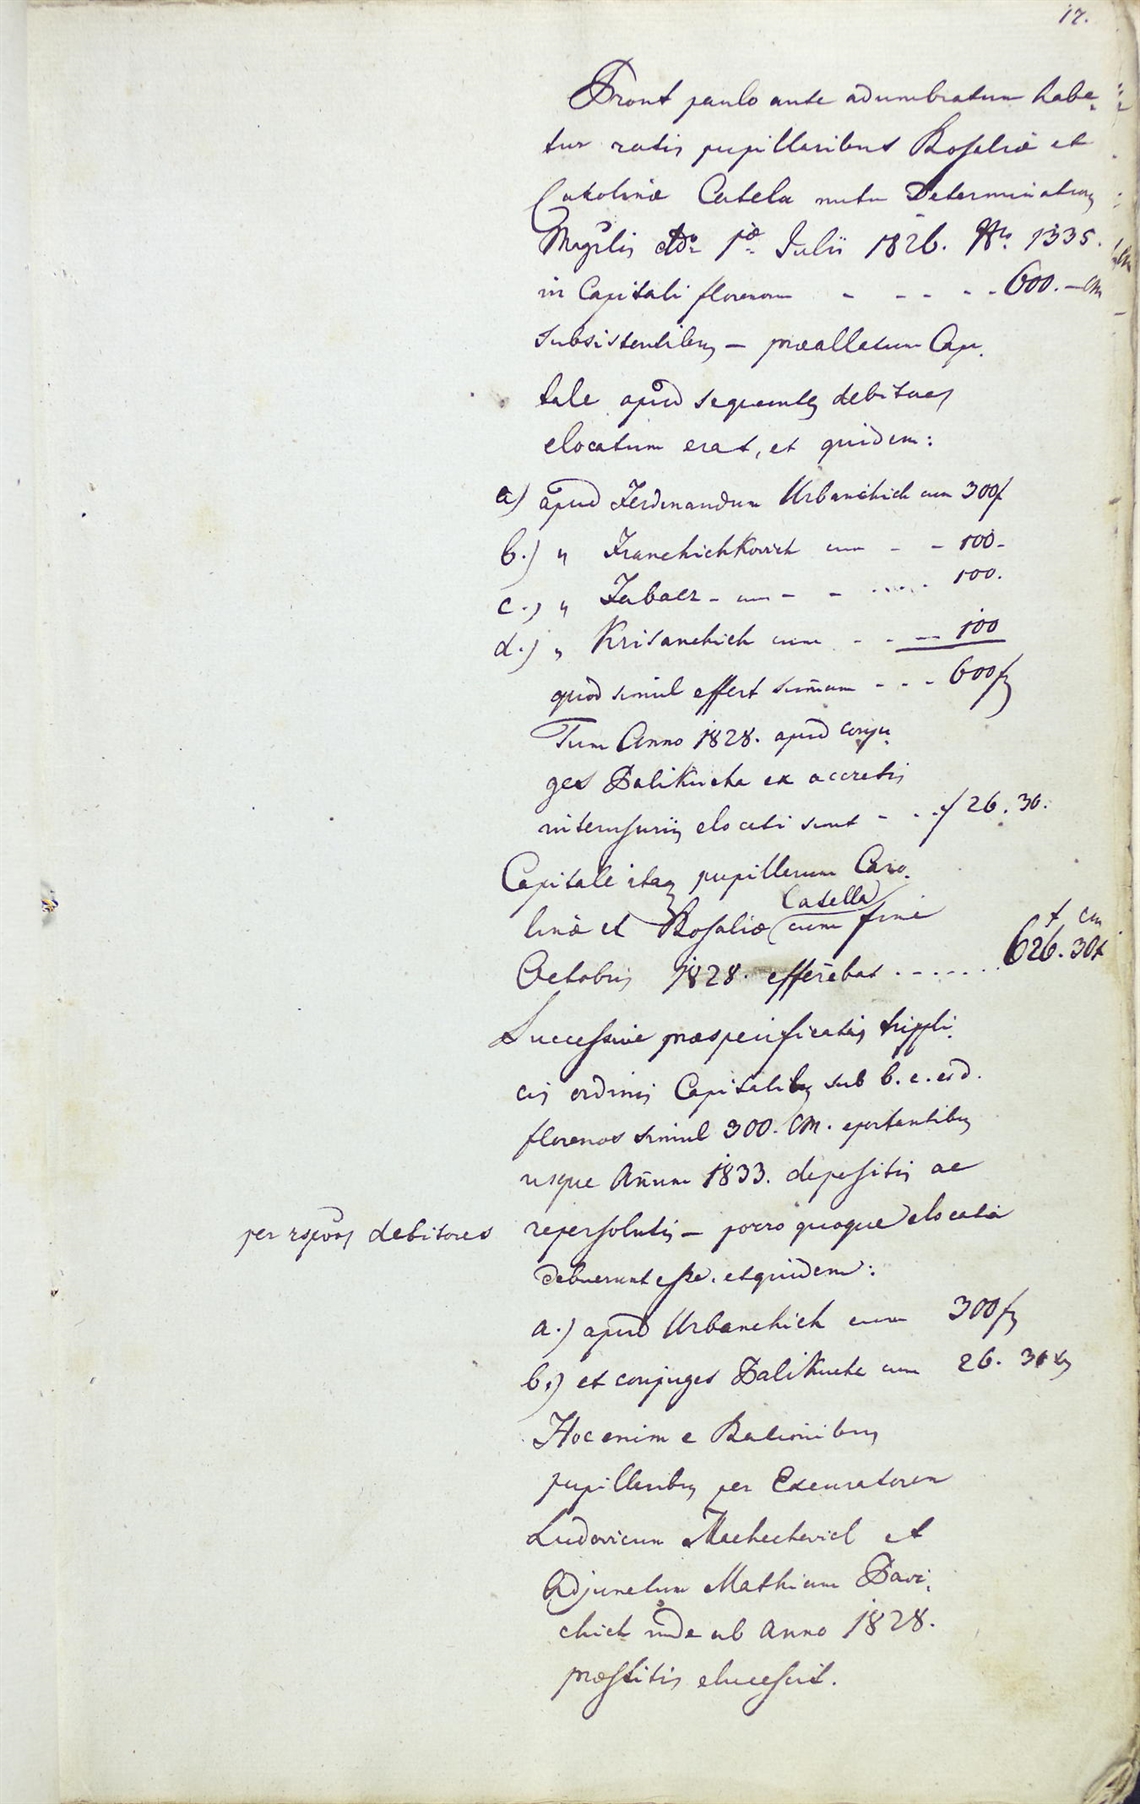 17.
Prout paulo ante adumbratum habe-
tur ratis pupillaribus Rosaliæ et
Carolinæ Catela nutu Determination
Magslis ddo 1æ Julii 1826. Nro 1335.
in Capitali florenorum - - - - - 600. - CM
subsistentibus - præallatum Capi-
tale apud sequentes debitores
elocatum erat, et quidem:
a) apud Ferdinandum Urbanchich cum 300f
b.) " Franchichkovich cum - - 100-
c.) " Zabacz - cum - - ..... 100.
d.) " Krisanchich cum - - - 100
quod simul effert summam - - - 600f
Tum Anno 1828. apud conju-
ges Palikucha ex accretis
interusuriis elocati sunt - - - f 26. 30.
Capitale itaq pupillarum Caro-
linæ et Rosaliæ Catella cum fine
Octobris 1828. efferebat . - - - - - 626. 30x
f CM
Successive præspecificatis tripli-
cis ordinis Capitalibus sub b. c. et d.
florenos simul 300. CM. eportantibus
usque Annum 1833. depositis ac
per rspvos debitores repersolutis - porro quoque elocata
debuerunt esse. et quidem:
a.) apud Urbanchich cum 300f
b.) et conjuges Palikucha cum 26. 30 x
Hoc enim e Rationibus
pupillaribus per Excuratorem
Ludovicum Machechevich et
Adjunctum Mathiam Pavi-
chich inde ab anno 1828.
præstitis elucescit.